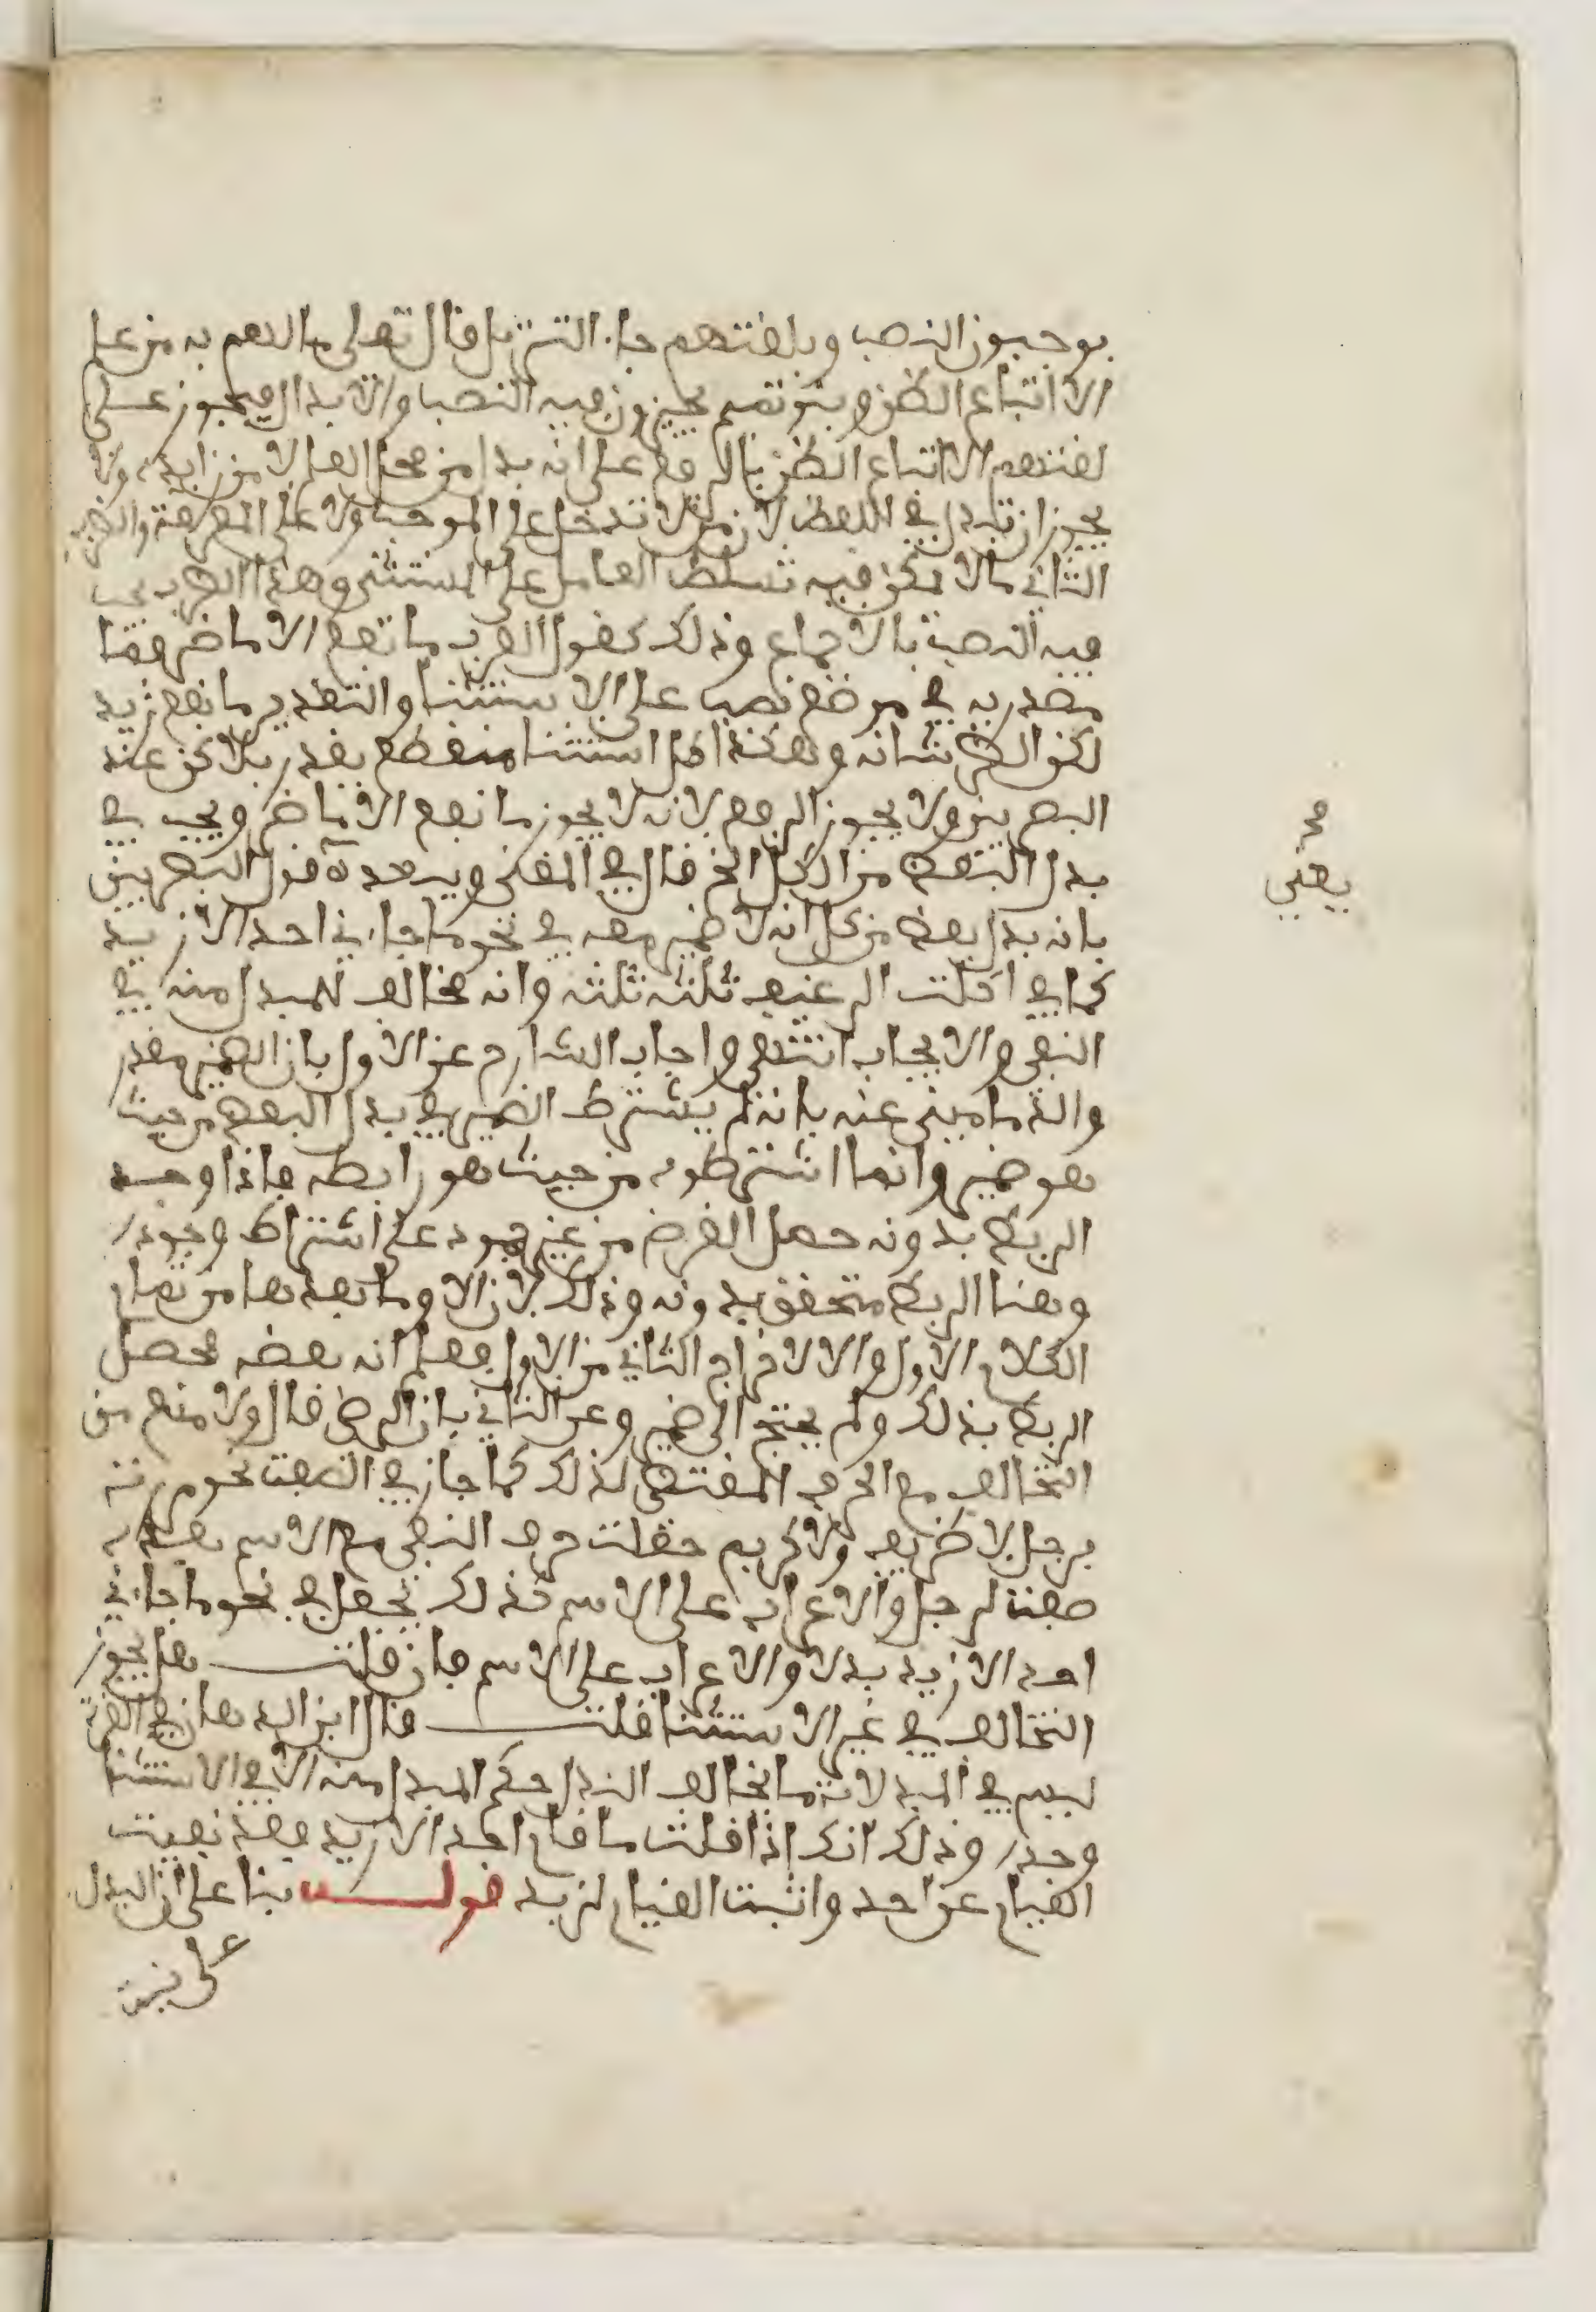 يوجبون النصب وبلغتهم جاء التنزيل قال تعلى ما لهم به من علم
الا اتباع الظن وبنو تميم يجيزون فيه النصب والابدال فيجوز على
لغتهم الا اتباع الظن بالرفع على انه بدل من محل العلم لا من زايدة ولا
يجوز ان تبدل في اللفظ لان من لا تدخل على الموجب ولا على المعرفة والضرب
الثاني ما لا يمكن فيه تسلط العامل على المستثنى وهذا الضرب يجب
فيه النصب بالاجماع وذلك كقول العرب ما نفع الا ما ضر فما
مصدرية في موضع نصب على الاستثنا والتقدير ما نفع زيد
لكن الضر شانه وهكذا كل استثنا منقطع يقدر بلاكن عند
البصريين ولا يجوز الرفع لانه لا يجوز ما نفع الا ما ضر ويجب في
بدل البعض من الكل الخ قال في المغنى ويبعده قول البصريين
بانه بدل بعض من كل انه لا ضمير معه في نحو ما جاءني احد الا زيد
كما في اكلت الرغيف ثلثه ثلثه وانه مخالف للمبدل منه في
النفي والايجاب انتهى واجاب الشارح عن الاول بان الضمير مقدر
والدماميني عنه بانه لم يشترط الضمير في بدل البعض من حيث
هو ضمير وانما اشترطوه من حيث هو رابط فاذا وجد
الربط بدونه حصل الغرض من غير جمود على اشتراط وجوده
وهنا الربط متحقق بدونه وذلك لان الا وما بعدها من تمام
الكلام الاول والا لاخراج الثاني من الاول فعلم انه بعضه فحصل
الربط بذلك ولم يحتج الى ضمير وعن الثاني بان الرضى قال ولا منع من
التخالف مع الحرف المقتضى لذلك كما جاز في النعت نحو مررت
برجل لا ظريف ولا كريم جعلت حرف النفي مع الاسم بعده
صفة لرجل والاعراب على الاسم كذلك تجعل في نحو ما جاءني
احد الا زيد بدلا والاعراب على الاسم فان قلت هل يجوز
التخالف في غير الاستثنا قلت قال ابن الدهان في الغرة
ليس في المبدلات ما يخالف البدل حكم المبدل منه الا في الاستثنا
وحده وذلك انك اذا قلت ما قام احد الا زيد فقد نفيت
القيام عن احد واثبت القيام لزيد قوله بنا على ان البدل
على نية
يعني